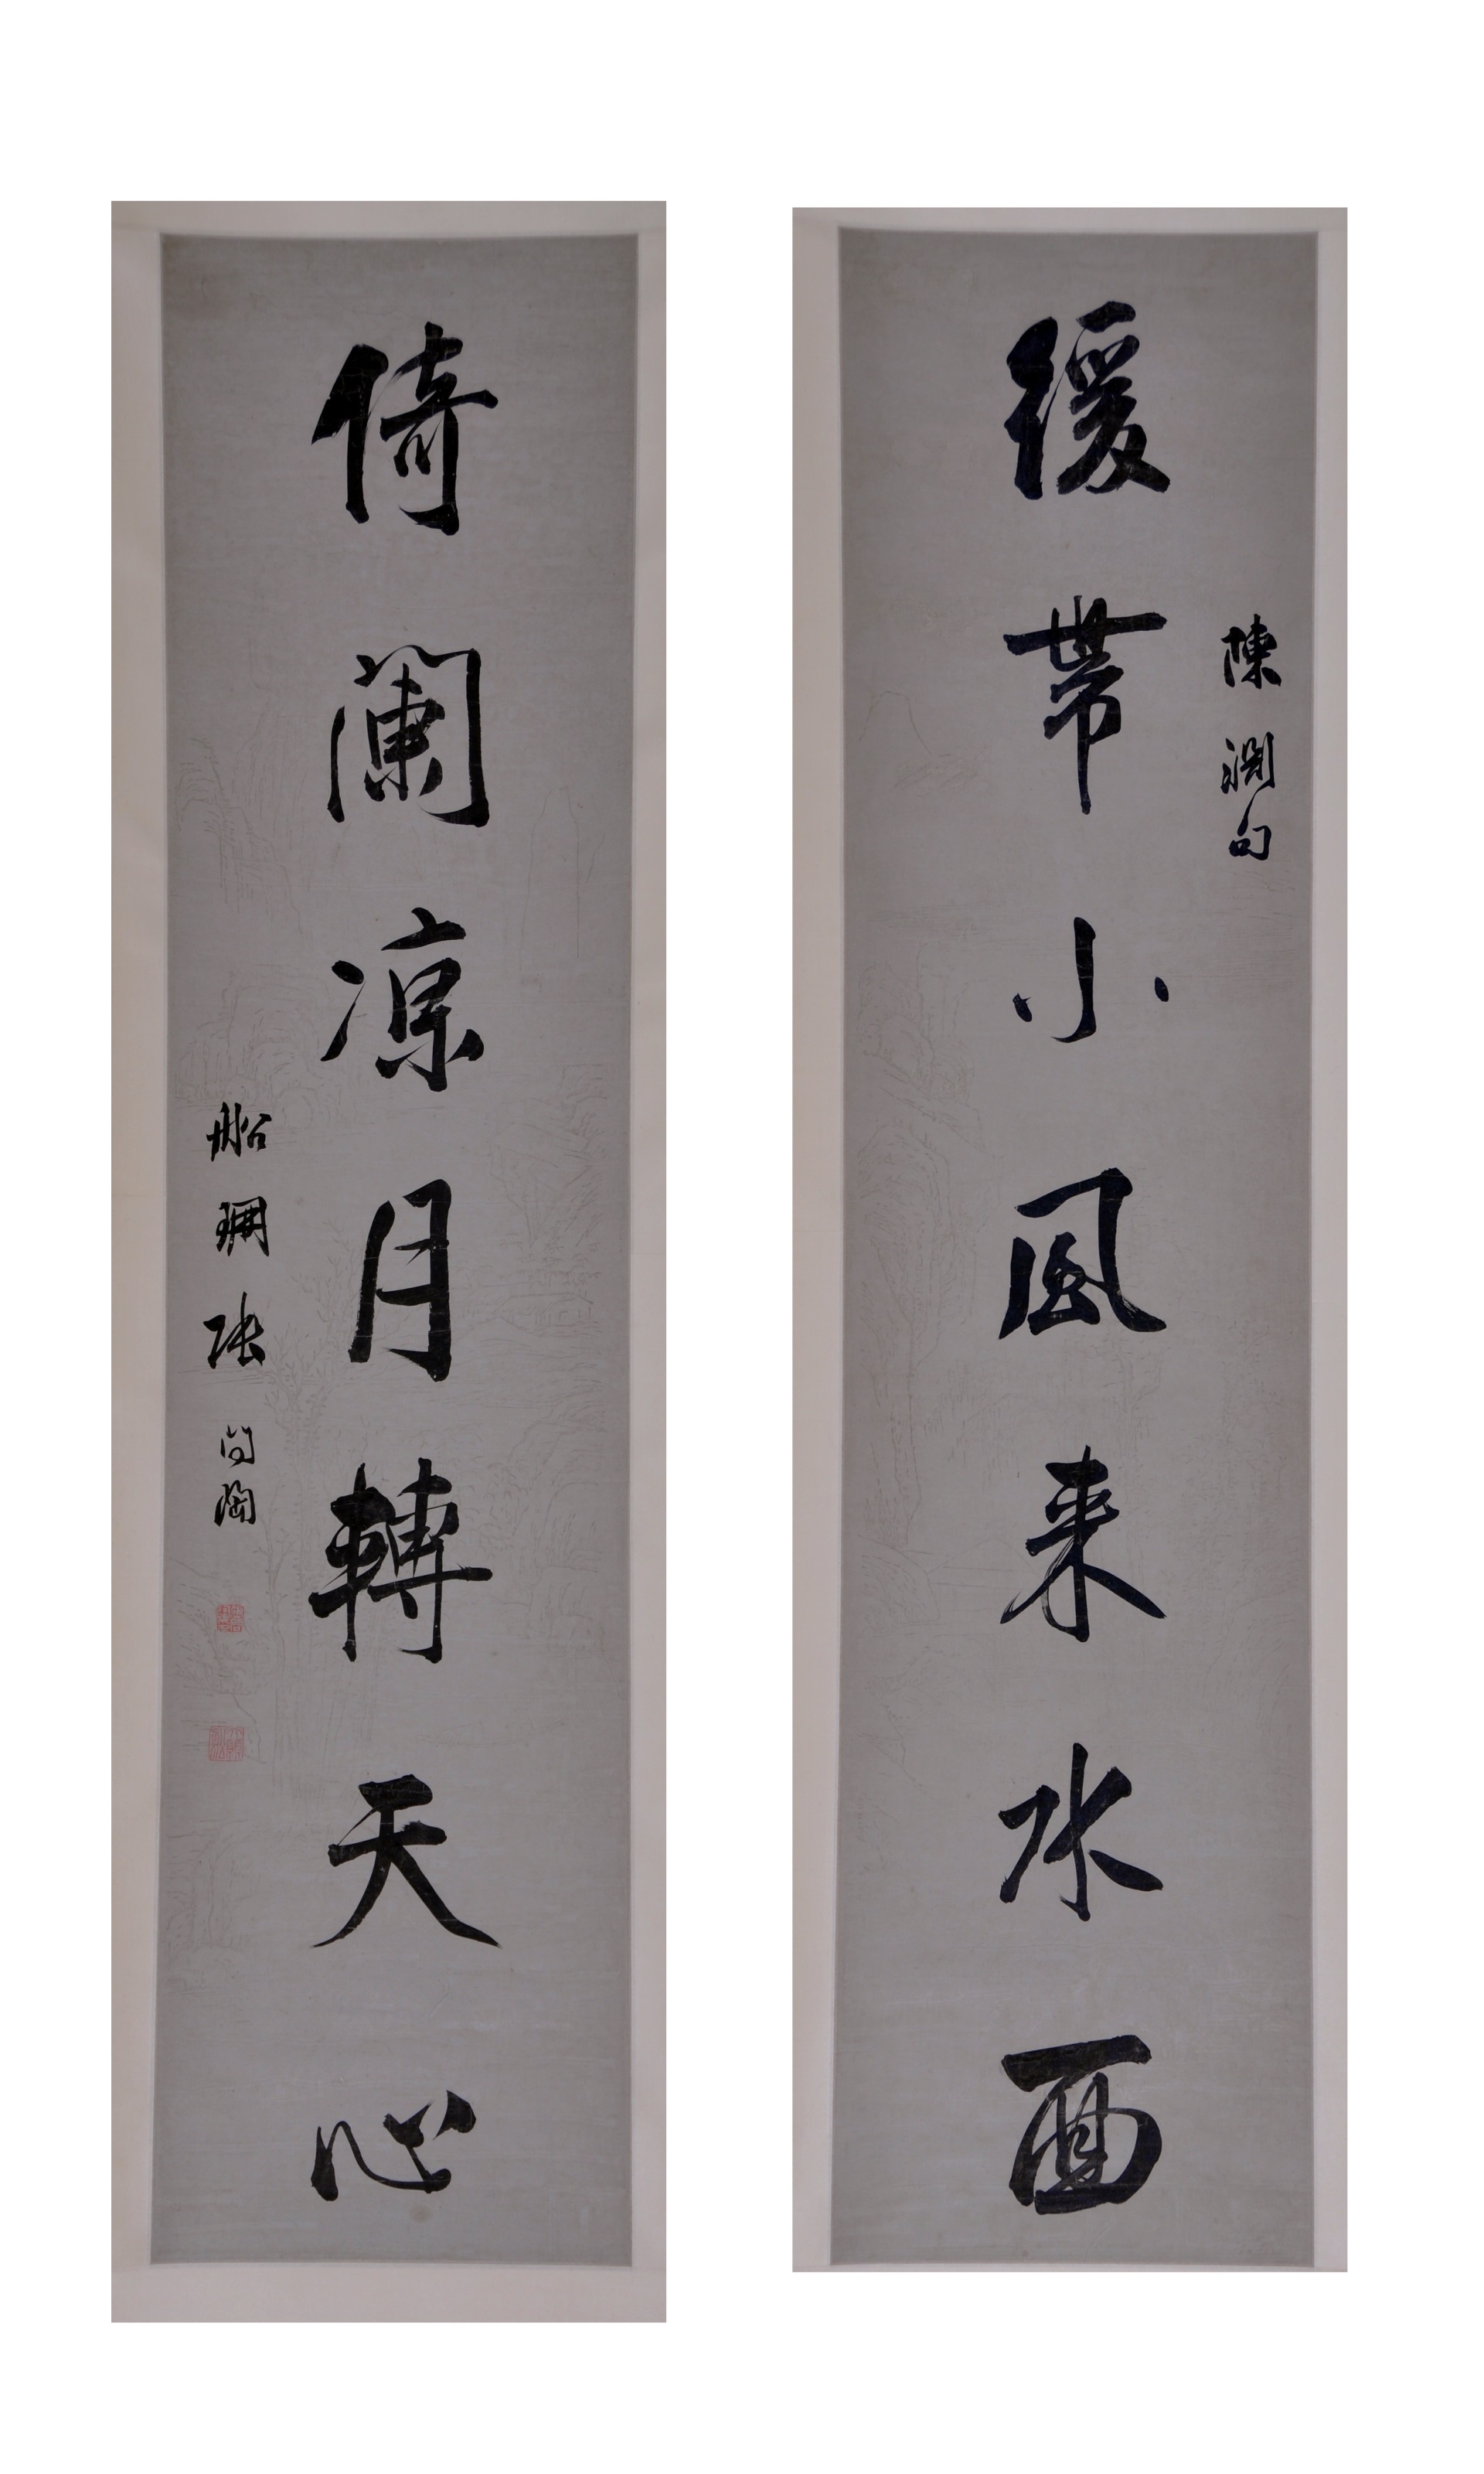 陳淵句
緩帶小風来水面
倚闌凉月轉天心
船山張問陶